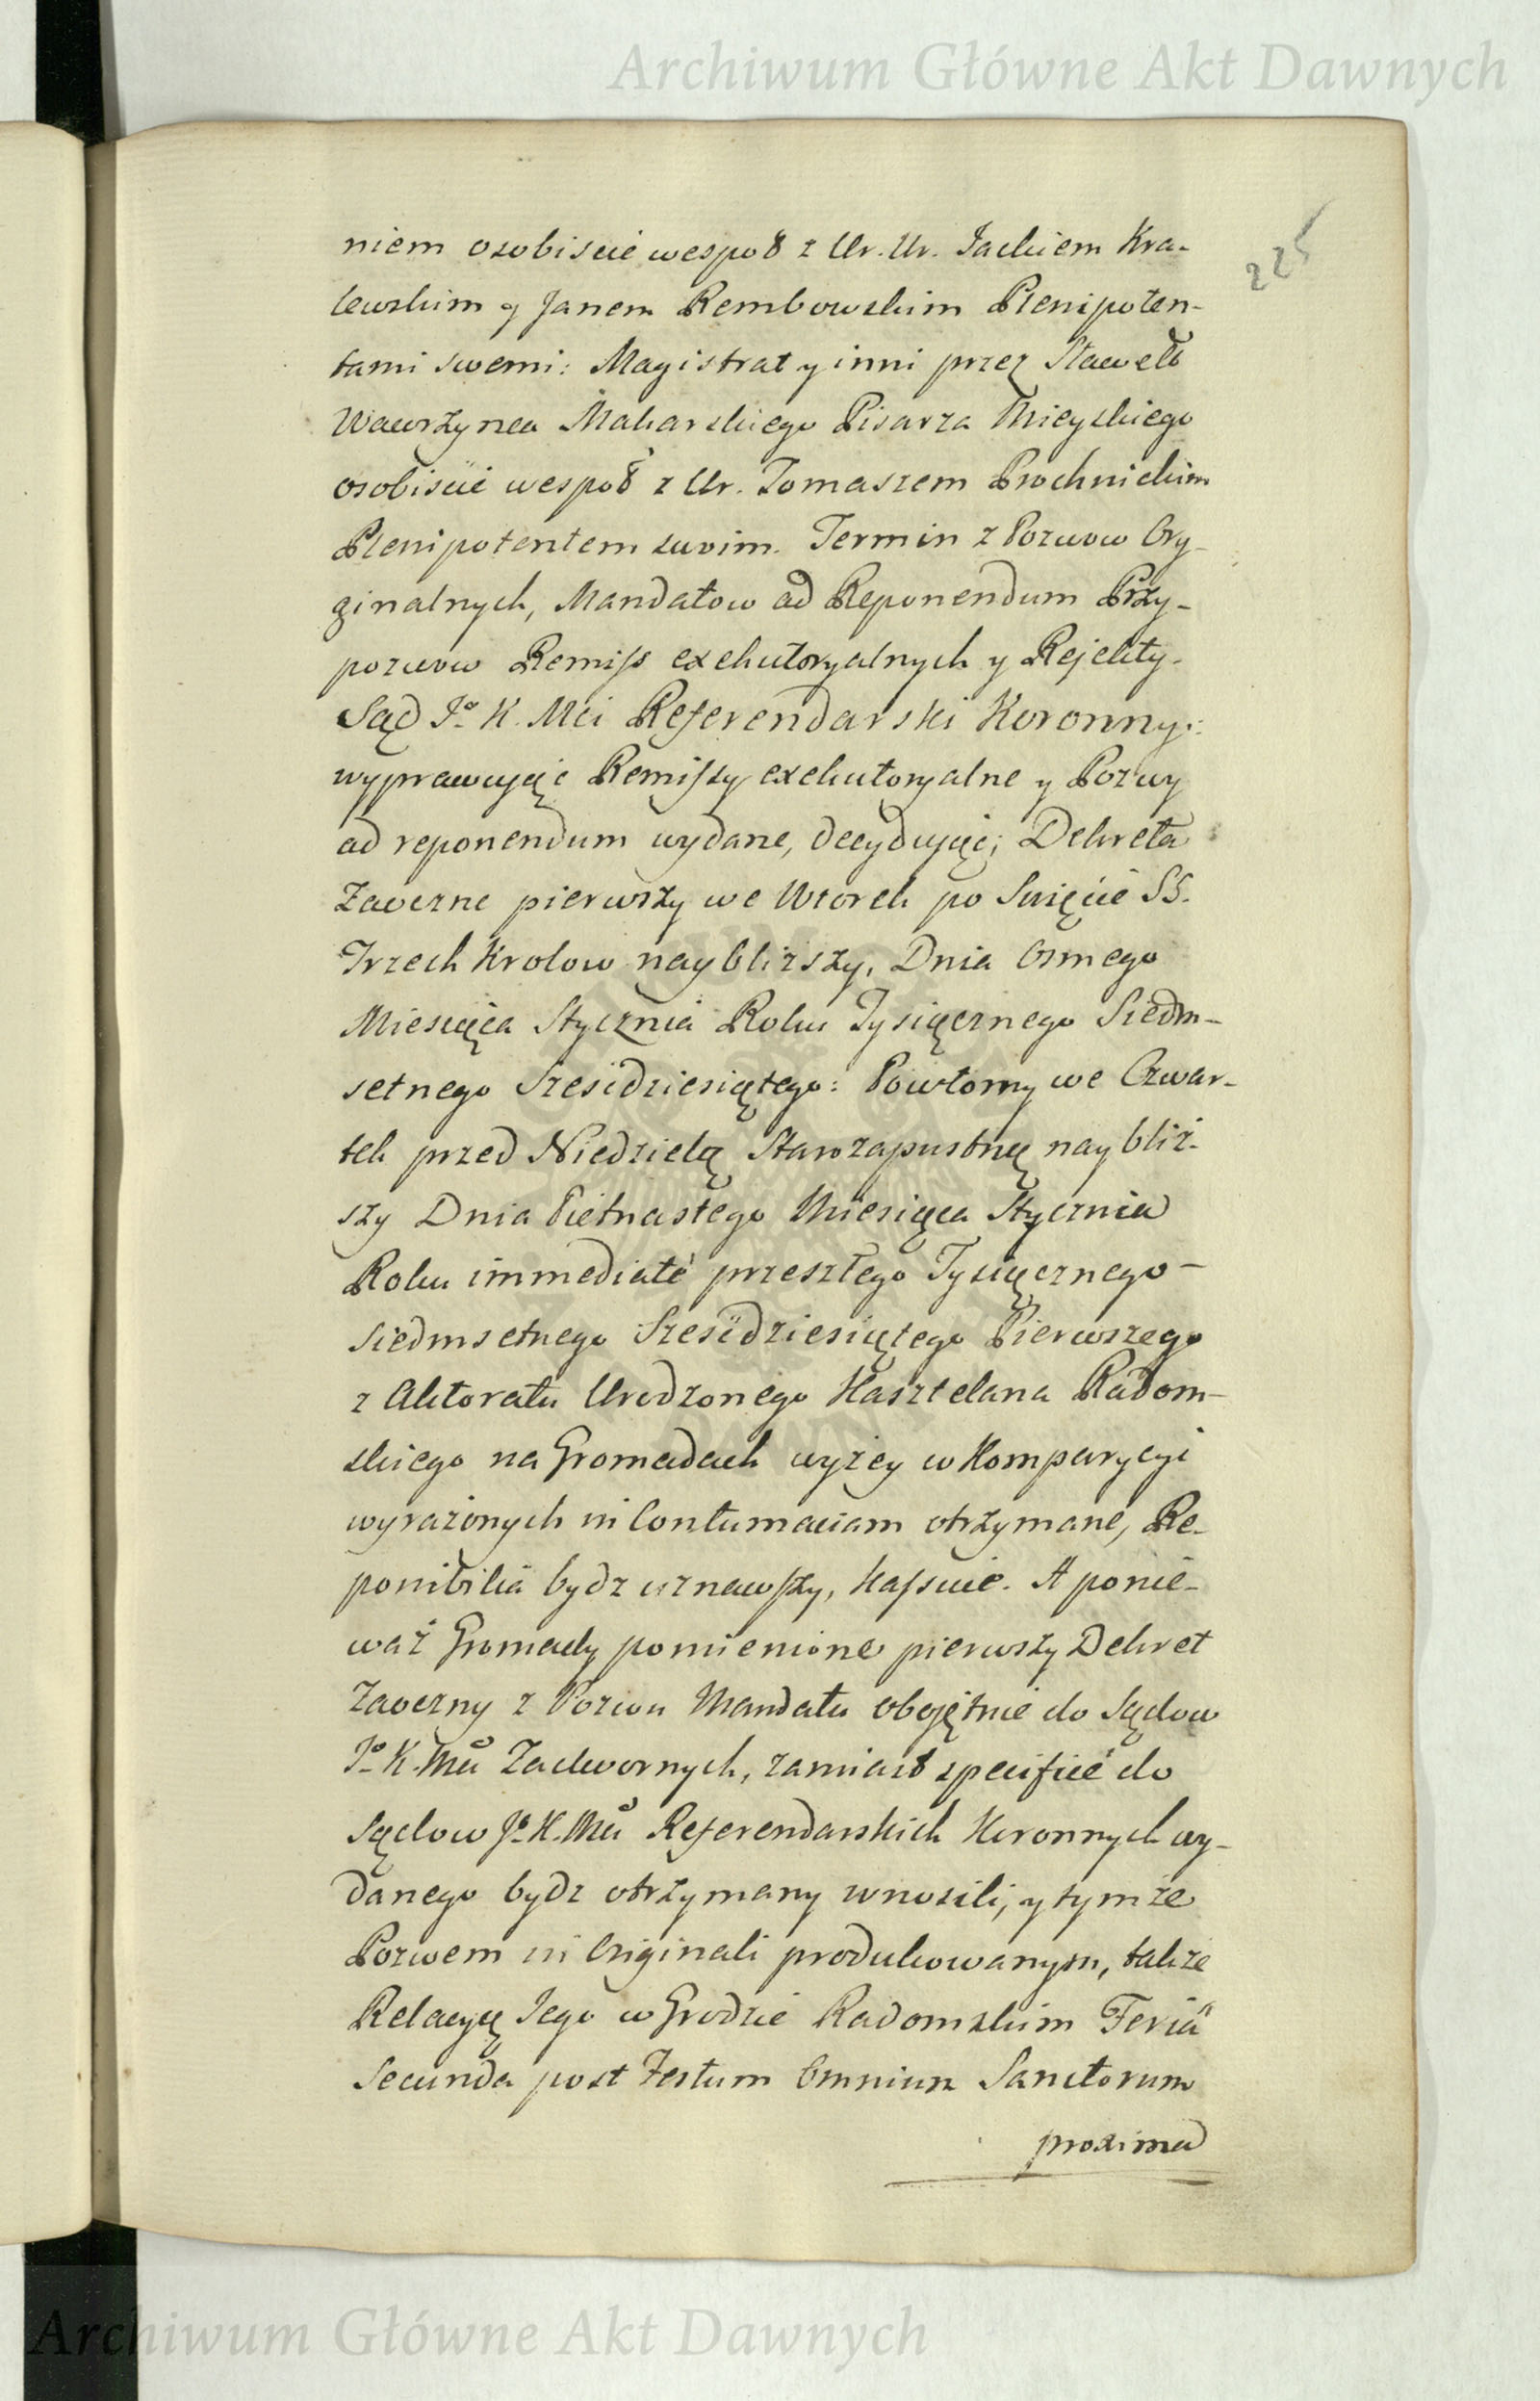 Archiwum Główne Akt Dawnych
225
niem osobiscie wespoł z Ur. Ur. Jackiem Kra-
lewskim y Janem Rembowskim Plenipoten-
tami swemi: Magistrat y inni przez Sławetº
Wawrzynca Makarskiego Pisarza Mieyskiego
osobiscie wespoł z Ur. Tomaszem Prochnickim
Plenipotentem swoim. Termin z Pozwow Ory-
ginalnych, Mandatow ad Reponendum Przy-
pozwow Remiss exekutoryalnych y Rejekty.
Sąd Jº K. Mci Referendarski Koronny:
wyprawuiąc Remissy exekutoryalne y Pozwy
ad reponendum wydane, decyduiąc; Dekreta
Zaoczne pierwszy we Wtorek po Swięcie SS.
Trzech Krolow nayblizszy, Dnia Osmego
Miesiąca Stycznia Roku Tysiącznego Siedm-
setnego Szescdziesiątego: Powtorny we Czwar-
tek przed Niedzielą Starozapustną naybliż-
szy Dnia Pietnastego Miesiąca Stycznia
Roku immediatè przeszłego Tysiącznego
Siedmsetnego Szescdziesiątego Pierwszego
z Aktoratu Urodzonego Kasztelana Radom-
skiego na Gromadach wyżey w Komparycyi
wyrażonych in Contumaciam otrzymane, Re-
ponibilia bydz uznawszy, kassuie. A ponie-
waż Gromady pomienione pierwszy Dekret
Zaoczny z Pozwu Mandatu obojętnie do Sądow
Jº K. Mci Zadwornych, zamiast specificè do
Sądow Jº K. Mci Referendarskich Koronnych wy-
danego bydz otrzymany wnosili, y tymże
Pozwem in Originali produkowanym, także
Relacyą Jego w Grodzie Radomskim Feriâ
Secunda post Festum Omnium Sanctorum
proxima
Archiwum Główne Akt Dawnych